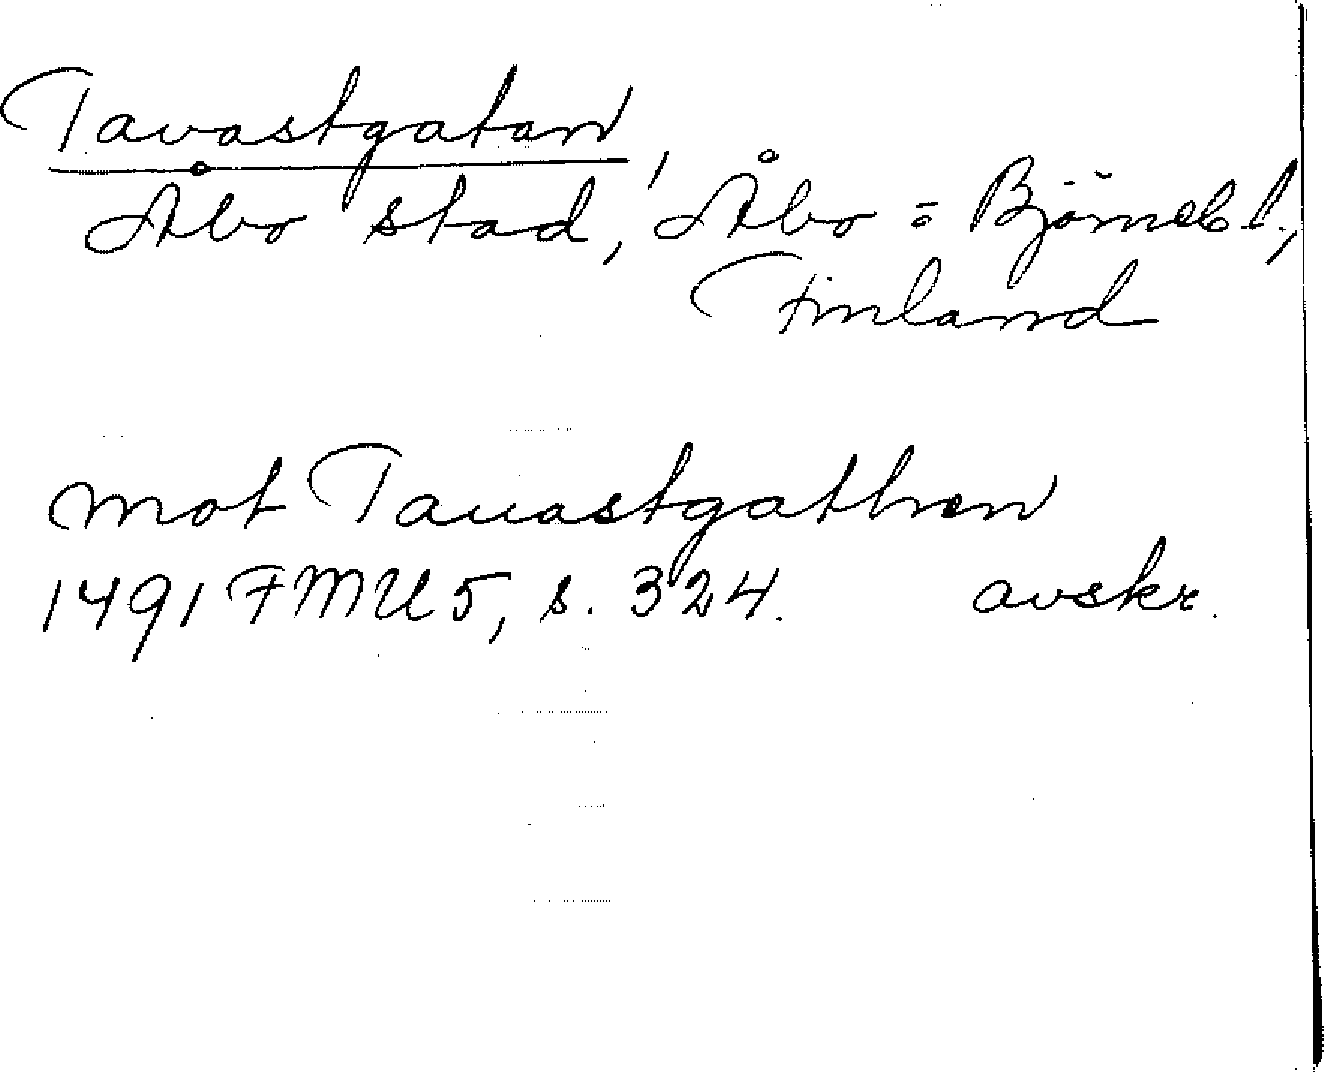 Tavastgatan,
Åbo stad, Åbo = Björneb. l.,
Finland
mot Tauastgathen
1491 FMU 5, s. 324. avskr.